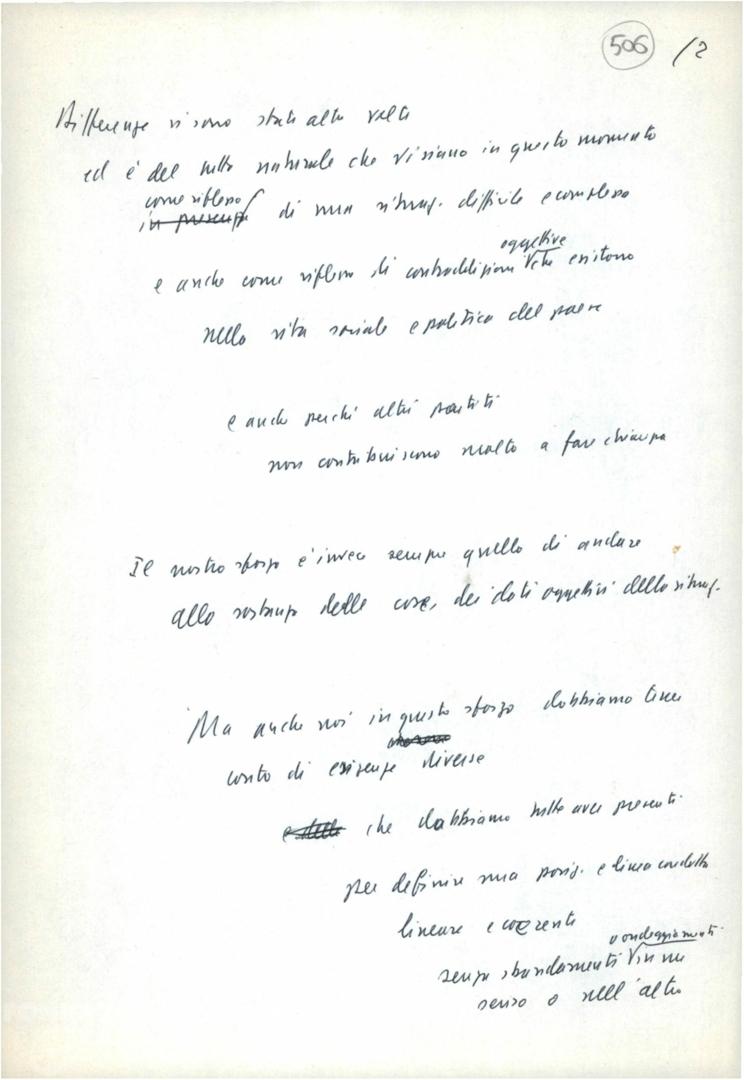 506 /2
Differenze vi sono state altre volte
ed è del tutto naturale che vi siano in questo momento
come riflesso
in presenza di una situaz. difficile e complessa
oggettive
e anche come riflesso di contraddizioni che esistono
nella vita sociale e politica del paese
e anche perché altri partiti
non contribuiscono molto a fare chiarezza
Il nostro sforzo è invece sempre quello di andare
alla sostanza delle cose, dei dati oggettivi della situaz.
Ma anche noi in questo sforzo dobbiamo tener
conto di esigenze diverse
e delle che dobbiamo tutte aver presenti
per definire una posiz. e linea condotta
lineare e coerente
o ondeggiamenti
senza sbandamenti in un
senso o nell'altro